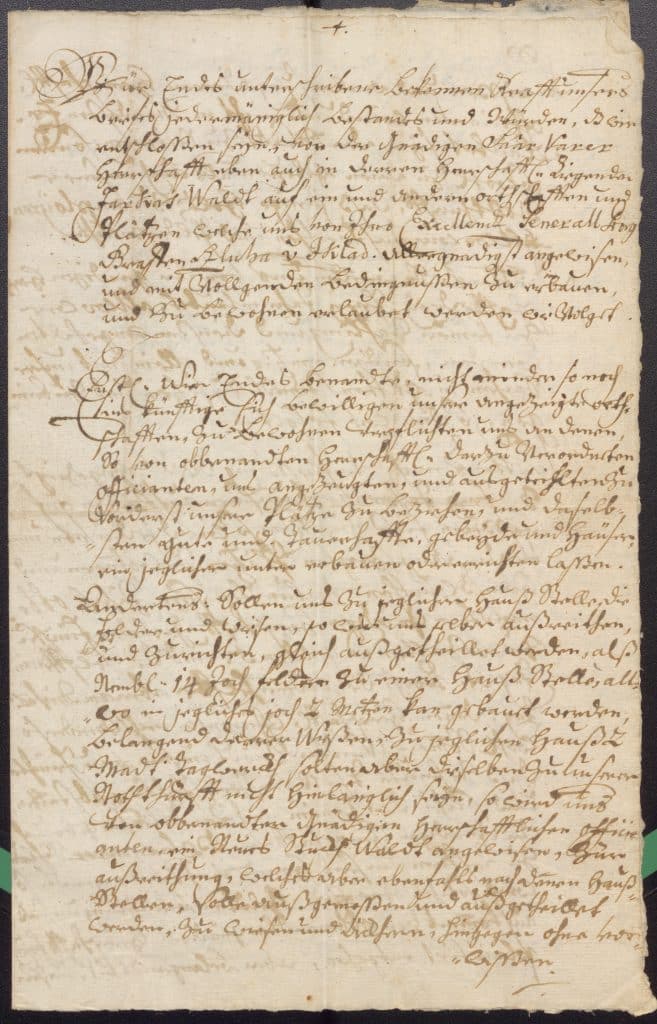 4.
Wür Endes unterschribene bekennen Krafft unsers
briefes jedermäniglich bestands und Würden, d wir
entschlossen seyn, von der Gnädigen
Herrschafft eben auch in derren Herrschafft Ligenden
Waldt auf ein und andern orthschafften und
Plätzen welche uns von Ihro Excellenz General
allergnädigst angewisen,
und mit Vollgenden bedingnussen zu erbauen,
und zu bewohnen erlaubet werden wie Volgt.
Erstl. Wier Endes benandte, nicht minder so noch
ins künfftige sich bewilligen unsere angezeigte orth-
schafften, zu bewohnen verpflichten uns an denen,
So von obbenandten Herrschafftl. darzu Verordneten
officianten, uns angezeugten, und ausgetheilten zu
Vorderst unsere Plätze zu beziehen, und daselb-
sten gute und Dauerhaffte, gebeyde und Häuser,
ein jeglicher unter erbauen oder errichten lassen.
Andertens: Sollen uns zu jeglicher Hauß Stelle, die
Felder und Wisen, so wir uns selber außreithen,
und zurichten, gleich außgetheillet werden, alß
Nembl. 14 Joch felder zu einer Hauß Stelle, all-
wo in jegliches joch 2 Metzen kan gebauet werden,
belangend derrer Wissen, zu jeglichen Hauß 2
Madt Taglwerckh solten aber dieselben zu unserer
Nothturfft nicht hinlänglich seyn, so wird uns
von obbenandten Gnädigen Herrschafftlichen officie
anten, ein Neues Stuckh Waldt angewisen, zur
außreithung, welches aber ebenfahls nach denen Hauß-
Stellen, solle außgemessen und außgetheillet
werden, zu wiesen und äckhern, hingegen ohne ver-
lassen.